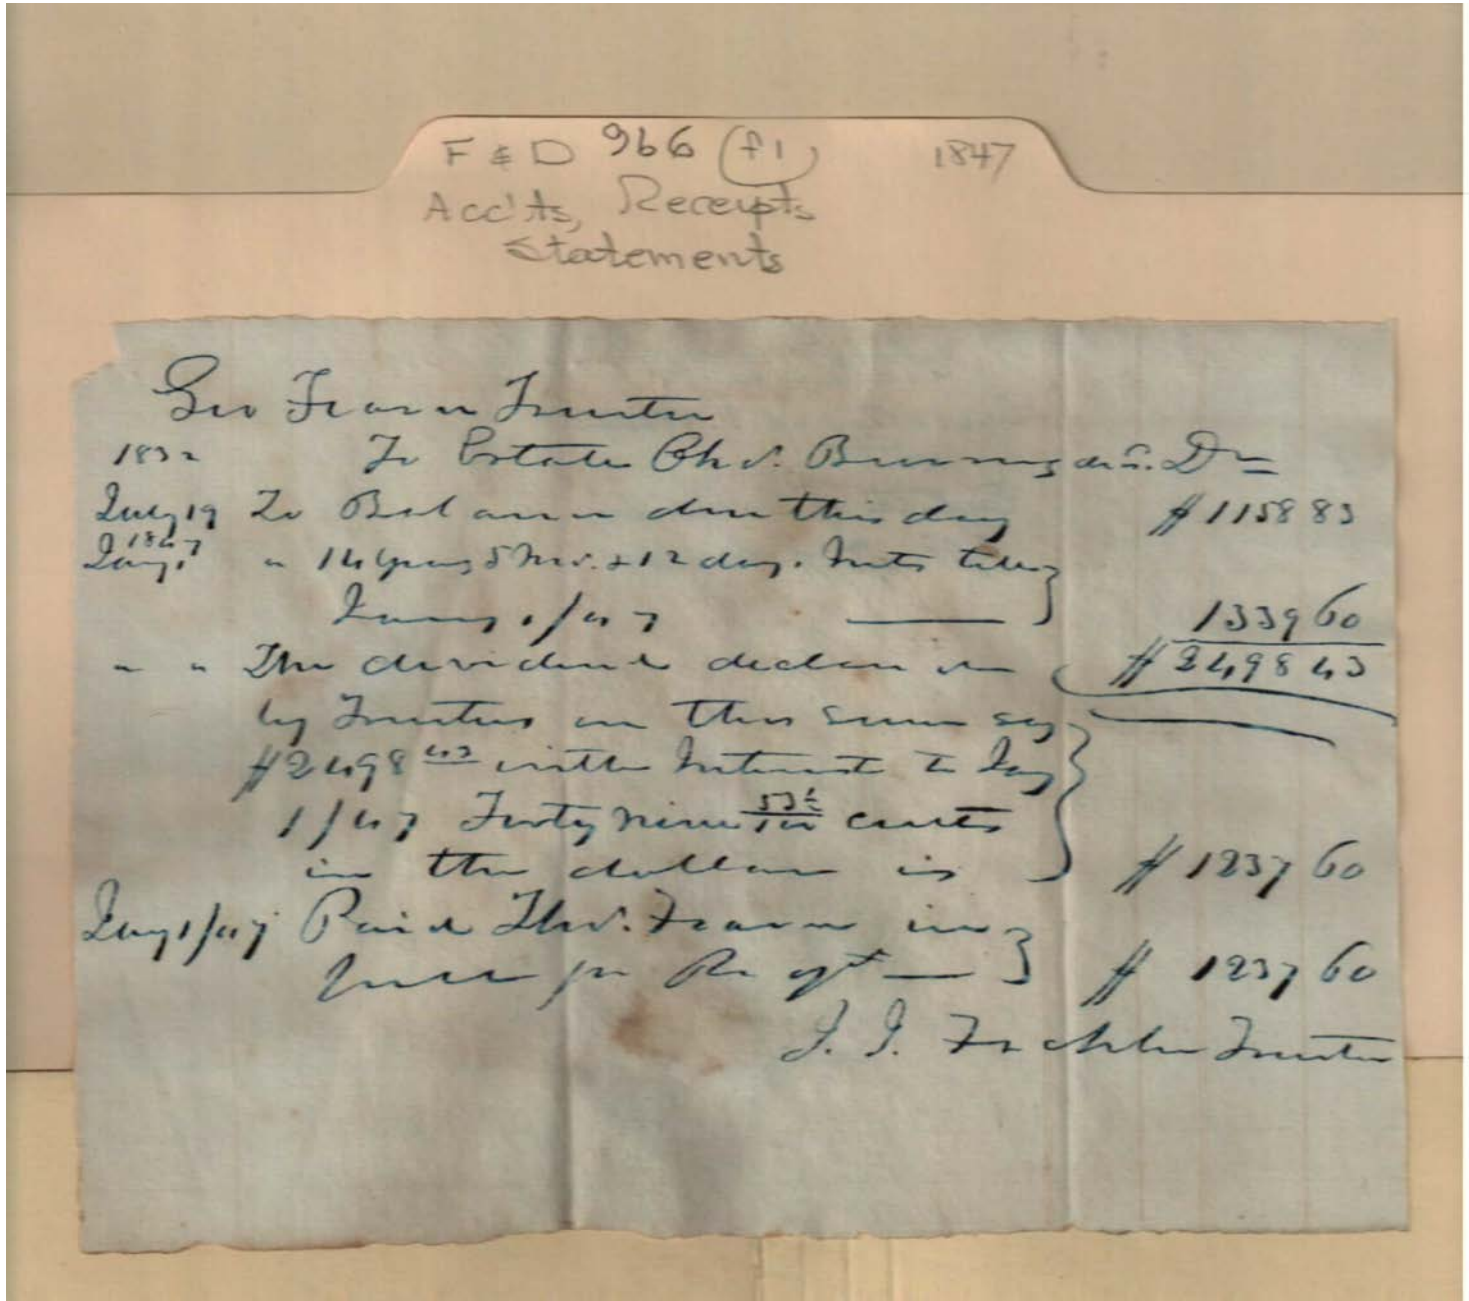 F & D 966 (f1) 1847
Acc'ts, Receipts
Statements
Geo Fearn Trustee
1832 To Estate Chs. Dr
July 19 To Balance due this day $1158 83
1847
Jany. " 14 years 5 Mos. & 12 days. Intst till
Jany 1/47 1339 60
" " The dividend declared $2498 43
by Trustees on this sum say
$2498 43 with Interest to Jany
1/47 Forty nine 53½/100 cents
in the dollar is $1237 60
Jany 1/47 Paid Thos. Fearn in
full pr Recpt $ 1237 60
J. J. Fackler Trustee